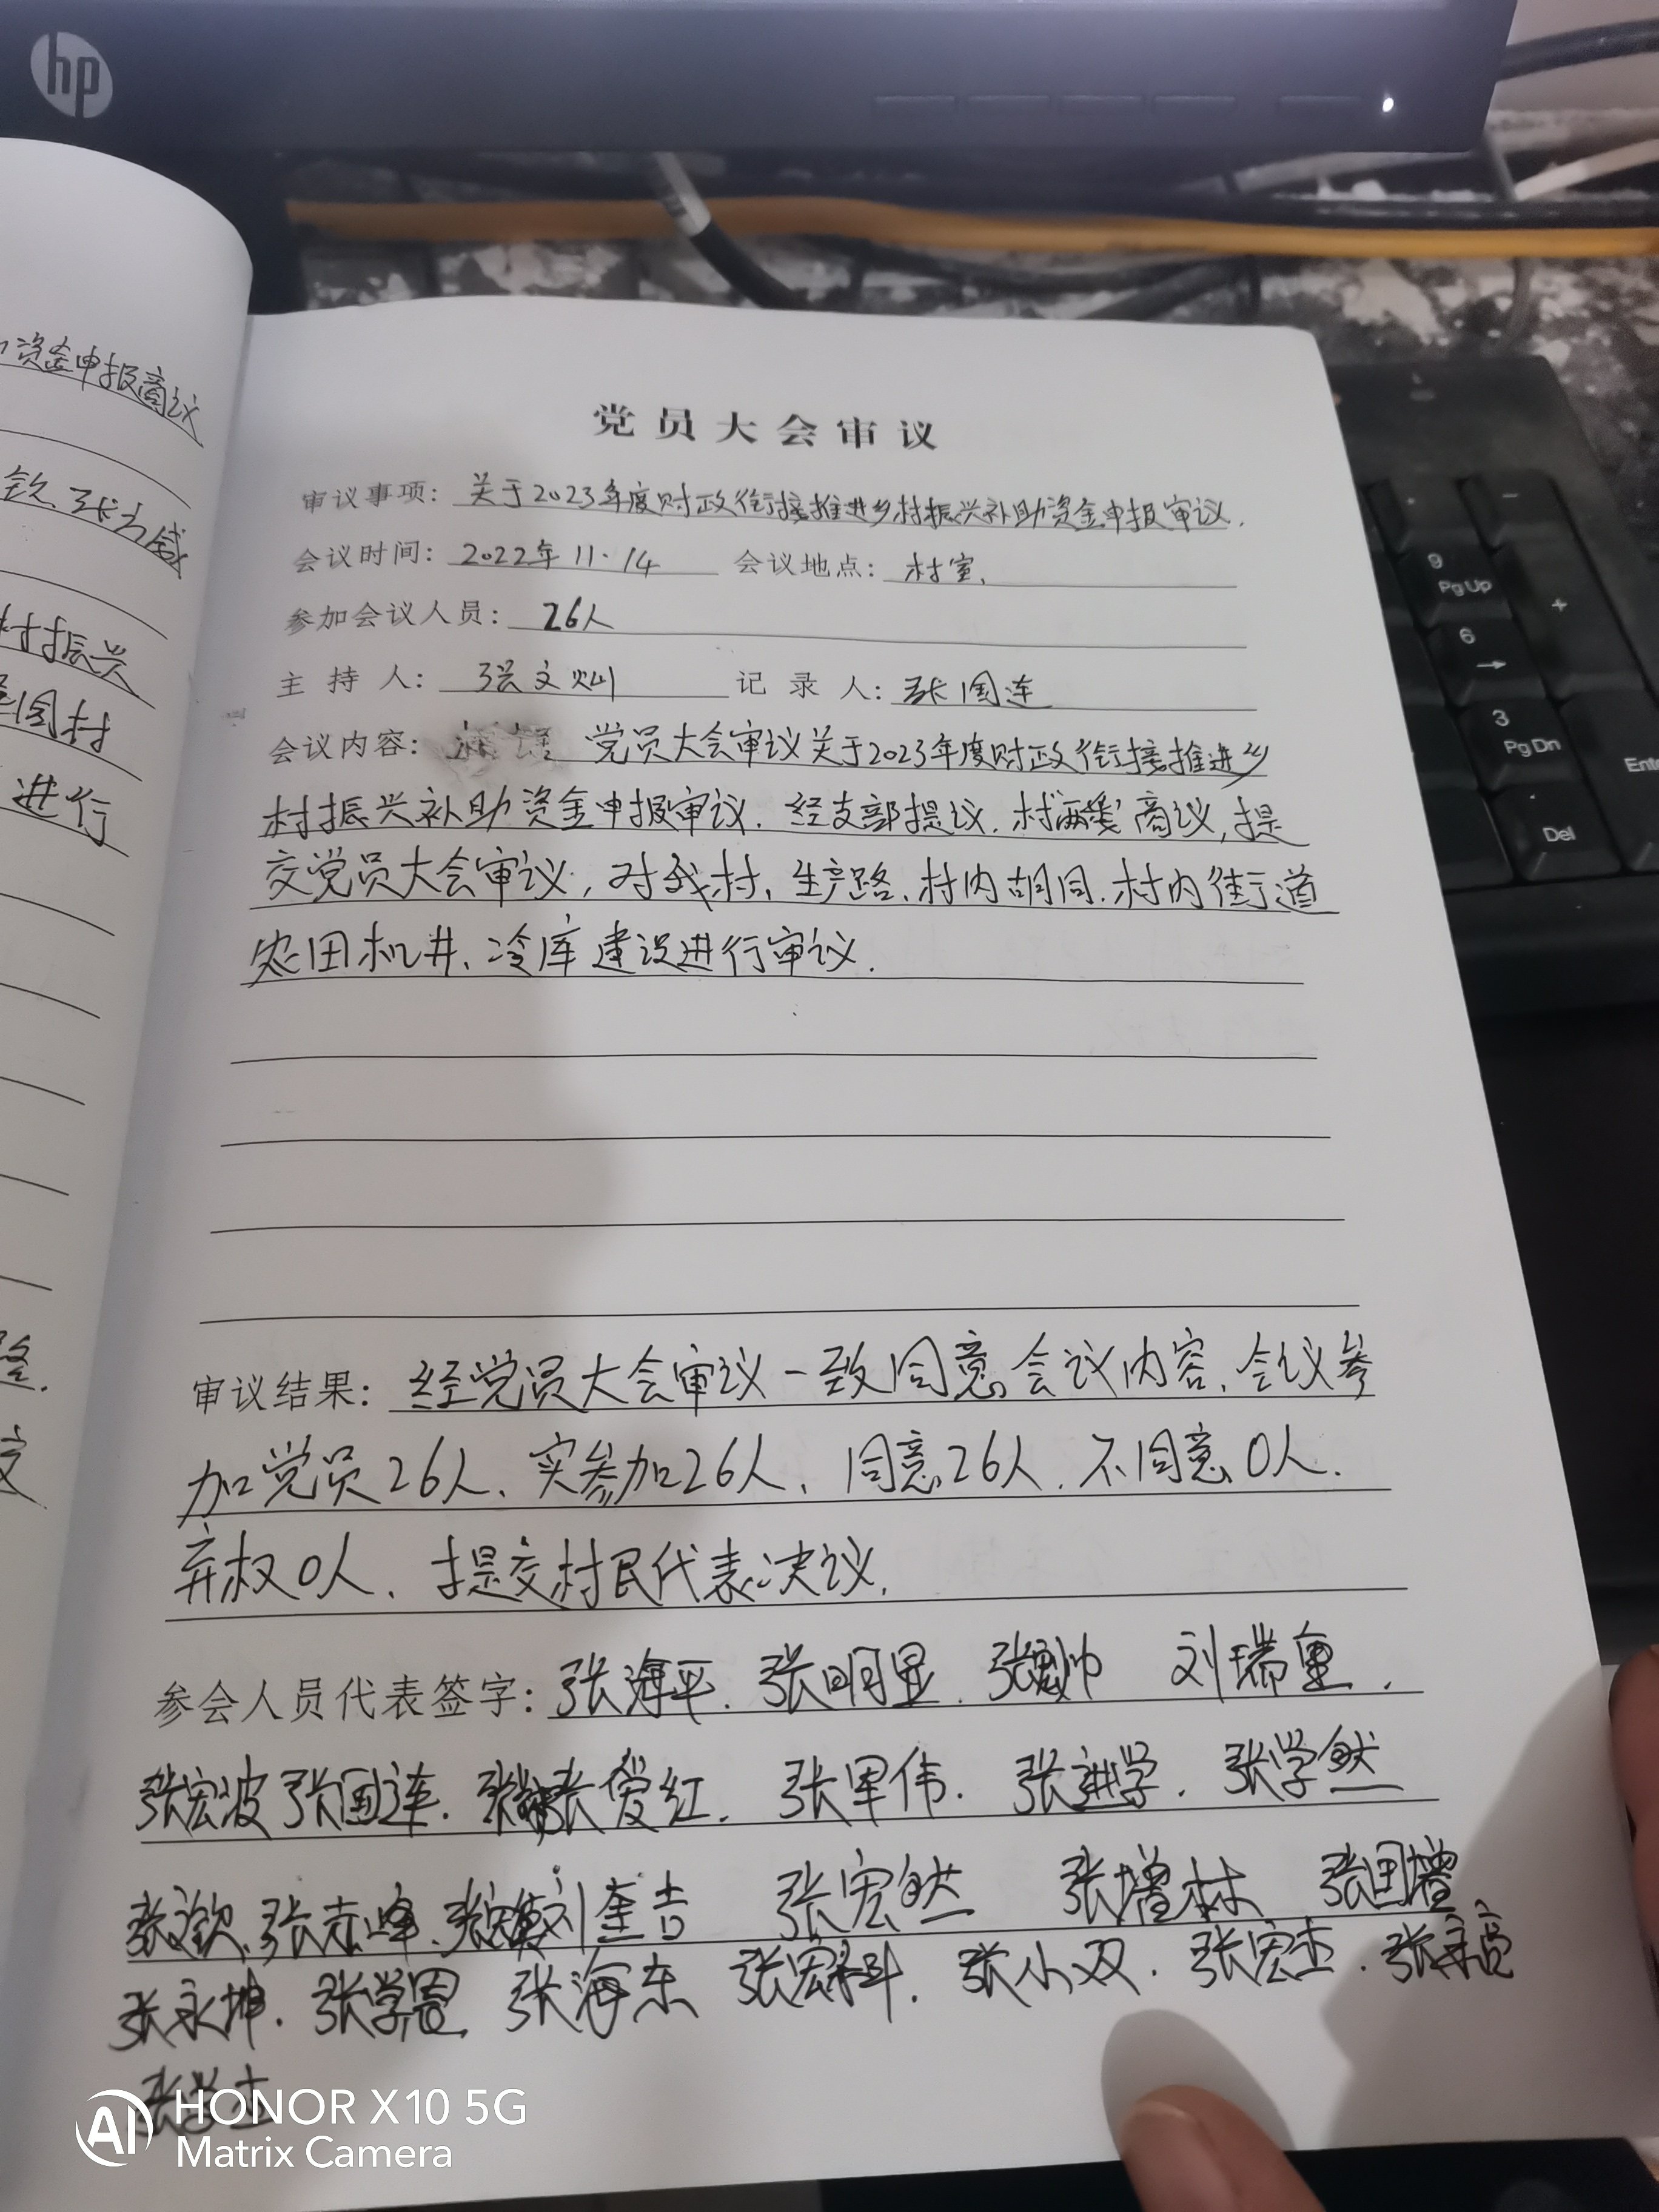 hp
资金申报商议
村振兴
进行
党员大会审议
审议事项: 关于2023年度财政衔接推进乡村振兴补助资金申报审议.
会议时间: 2022年11.14 会议地点: 村室.
参加会议人员: 26人
主持人: 张文灿 记录人: 张国连
会议内容: 党员大会审议关于2023年度财政衔接推进乡
村振兴补助资金申报审议. 经支部提议. 村两委商议, 提
交党员大会审议, 对我村、生产路、村内胡同、村内街道
农田机井、冷库建设进行审议.
审议结果: 经党员大会审议一致同意会议内容. 会议参
加党员26人、实参加26人、同意26人. 不同意0人.
弃权0人、提交村民代表决议.
参会人员代表签字: 张海平. 张明显. 刘瑞里.
张宏波 张国连. 张爱红. 张军伟. 张进学. 张学然
张文钦. 张志峰. 刘奎吉 张宏然 张增林 张国增
张永坤. 张学恩 张海东 张宏科. 张小双. 张宏杰. 张亮
张学杰
9
Pg Up
6
→
3
Pg Dn
.
Del
-
+
Ente
AI HONOR X10 5G
Matrix Camera